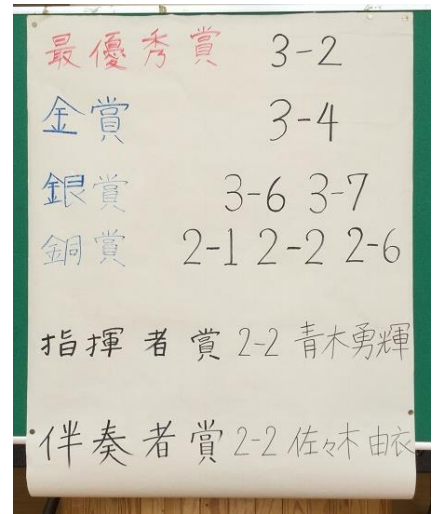 最優秀賞 3-2
金賞 3-4
銀賞 3-6 3-7
銅賞 2-1 2-2 2-6
指揮者賞 2-2 青木勇輝
伴奏者賞 2-2 佐々木由衣